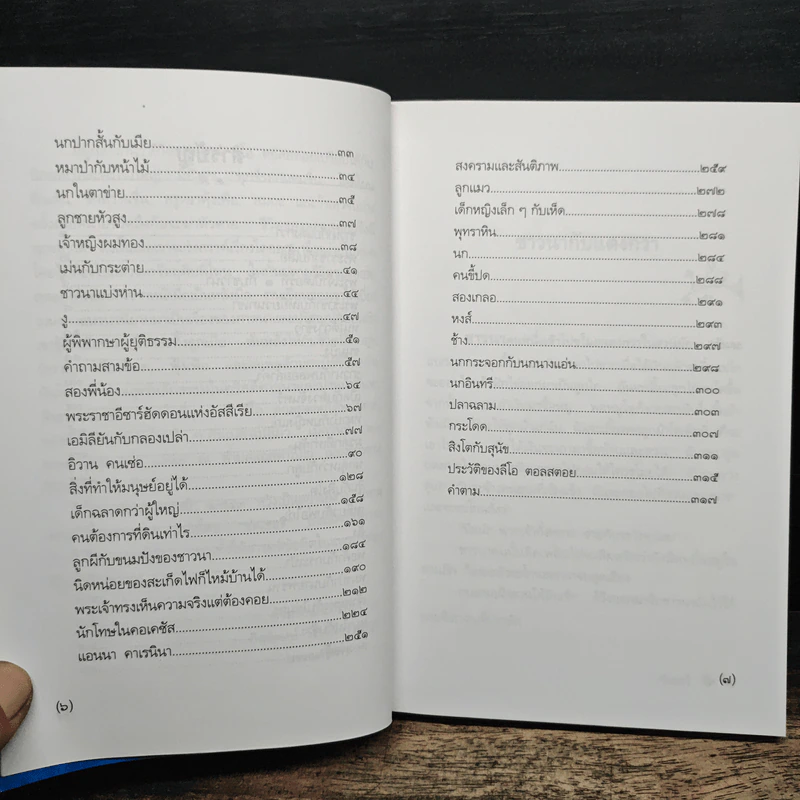 นกปากสั้นกับเมีย................................................๓๓
หมาป่ากับหน้าไม้................................................๓๔
นกในตาข่าย................................................๓๕
ลูกชายหัวสูง................................................๓๗
เจ้าหญิงผมทอง................................................๓๘
เม่นกับกระต่าย................................................๔๑
ชาวนาแบ่งห่าน................................................๔๔
งู................................................๔๗
ผู้พิพากษาผู้ยุติธรรม................................................๕๑
คำถามสามข้อ................................................๕๗
สองพี่น้อง................................................๖๔
พระราชาอีซาร์ฮัดดอนแห่งอัสสีเรีย................................................๖๗
เอมิลียันกับกลองเปล่า................................................๗๗
อิวาน คนเซ่อ................................................๙๐
สิ่งที่ทำให้มนุษย์อยู่ได้................................................๑๒๘
เด็กฉลาดกว่าผู้ใหญ่................................................๑๕๘
คนต้องการที่ดินเท่าไร................................................๑๖๑
ลูกผีกับขนมปังของชาวนา................................................๑๘๔
นิดหน่อยของสะเก็ดไฟก็ไหม้บ้านได้................................................๑๙๐
พระเจ้าทรงเห็นความจริงแต่ต้องคอย................................................๒๑๒
นักโทษในคอเคซัส................................................๒๒๔
แอนนา คาเรนินา................................................๒๕๑
(๖)
สงครามและสันติภาพ................................................๒๕๙
ลูกแมว................................................๒๗๒
เด็กหญิงเล็ก ๆ กับเห็ด................................................๒๗๘
พุทราหิน................................................๒๘๑
นก................................................๒๘๔
คนขี้ปด................................................๒๘๘
สองเกลอ................................................๒๙๑
หงส์................................................๒๙๓
ช้าง................................................๒๙๗
นกกระจอกกับนกนางแอ่น................................................๒๙๘
นกอินทรี................................................๓๐๐
ปลาฉลาม................................................๓๐๓
กระโดด................................................๓๐๗
สิงโตกับสุนัข................................................๓๑๑
ประวัติของลีโอ ตอลสตอย................................................๓๑๕
คำตาม................................................๓๑๗
(๗)